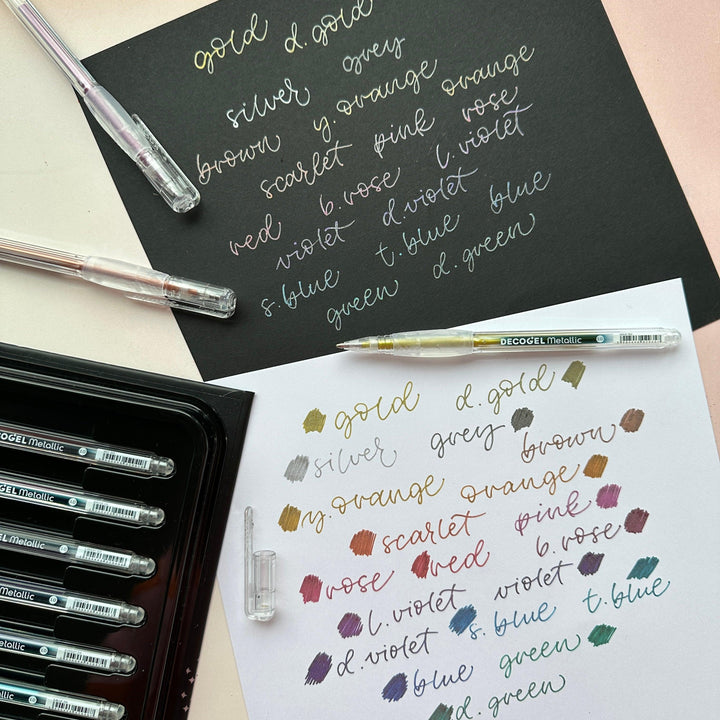 gold d.gold
silver grey
brown y.orange orange
scarlet pink rose
red b.rose l.violet
violet d.violet
s.blue t.blue blue
green d.green
DECOGEL Metallic
gold d.gold
silver grey brown
y.orange orange
scarlet pink
rose red b.rose
l.violet violet
d.violet s.blue t.blue
blue green
d.green
COGEL Metallic
GEL Metallic
EL Metallic
Metallic
Metallic
Metallic